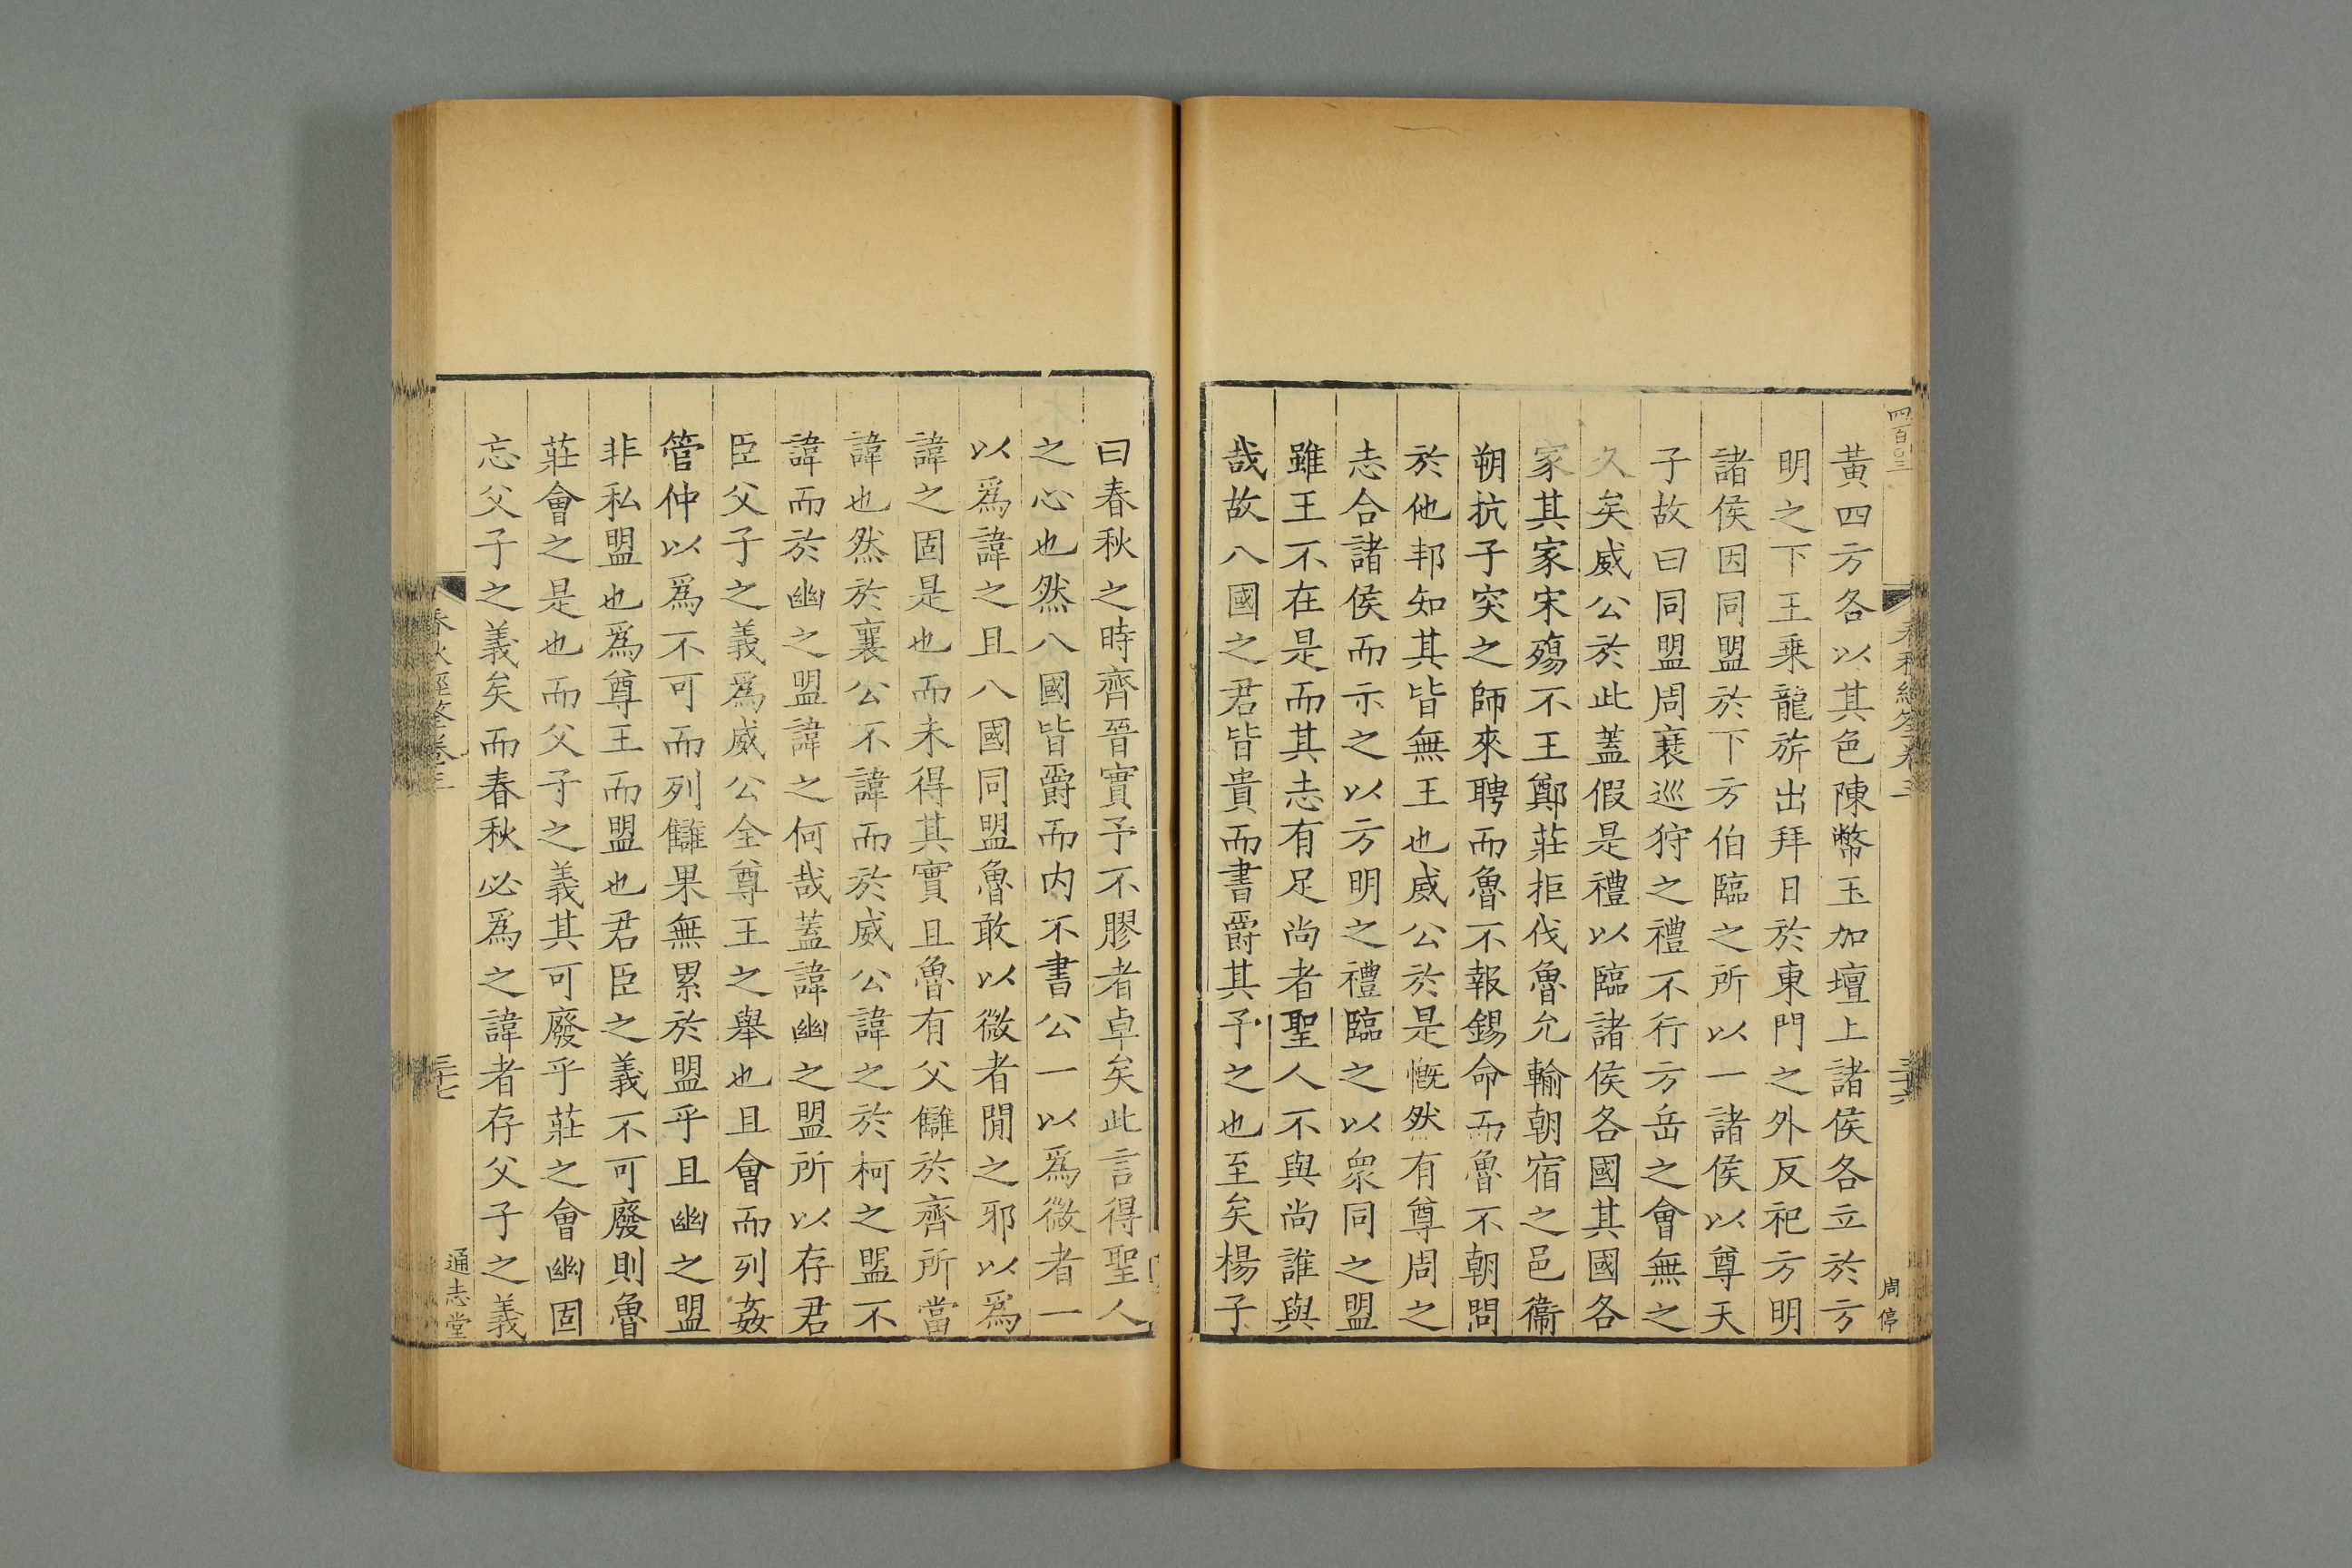 四百〇三
春秋經筌卷三
三十六
周停
黃四方各以其色陳幣玉加壇上諸侯各立於方
明之下王乗龍旂出拜日於東門之外反祀方明
諸侯因同盟於下方伯臨之所以一諸侯以尊天
子故曰同盟周襄巡狩之禮不行方岳之會無之
久矣威公於此蓋假是禮以臨諸侯各國其國各
家其家宋殤不王鄭莊拒伐魯允輸朝宿之邑衞
朔抗子突之師來聘而魯不報錫命而魯不朝問
於他邦知其皆無王也威公於是慨然有尊周之
志合諸侯而示之以方明之禮臨之以衆同之盟
雖王不在是而其志有足尚者聖人不與尚誰與
哉故八國之君皆貴而書爵其予之也至矣楊子
曰春秋之時齊晉實予不膠者卓矣此言得聖人
之心也然八國皆爵而内不書公一以為微者一
以爲諱之且八國同盟魯敢以微者閒之耶以爲
諱之固是也而未得其實且魯有父讎於齊所當
諱也然於襄公不諱而於威公諱之於柯之盟不
諱而於幽之盟諱之何哉蓋諱幽之盟所以存君
臣父子之義爲威公全尊王之舉也且會而列姦
管仲以爲不可而列讎果無累於盟乎且幽之盟
非私盟也爲尊王而盟也君臣之義不可廢則魯
莊會之是也而父子之義其可廢乎莊之會幽固
忘父子之義矣而春秋必爲之諱者存父子之義
春秋經筌卷三
三十七
通志堂